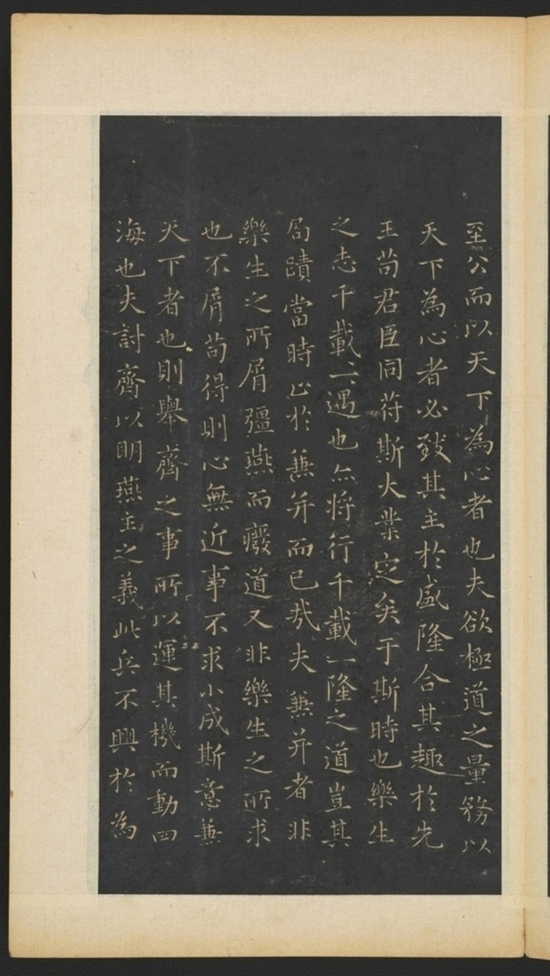 至公而以天下為心者也夫欲極道之量務以
天下為心者必致其主於盛隆合其趣於先
王苟君臣同符斯大業定矣于斯時也樂生
之志千載一遇也亦將行千載一隆之道豈其
局蹟當時止於兼并而已哉夫兼并者非
樂生之所屑彊燕而癈道又非樂生之所求
也不屑苟得則心無近事不求小成斯意兼
天下者也則舉齊之事所以運其機而動四
海也夫討齊以明燕主之義此兵不興於為